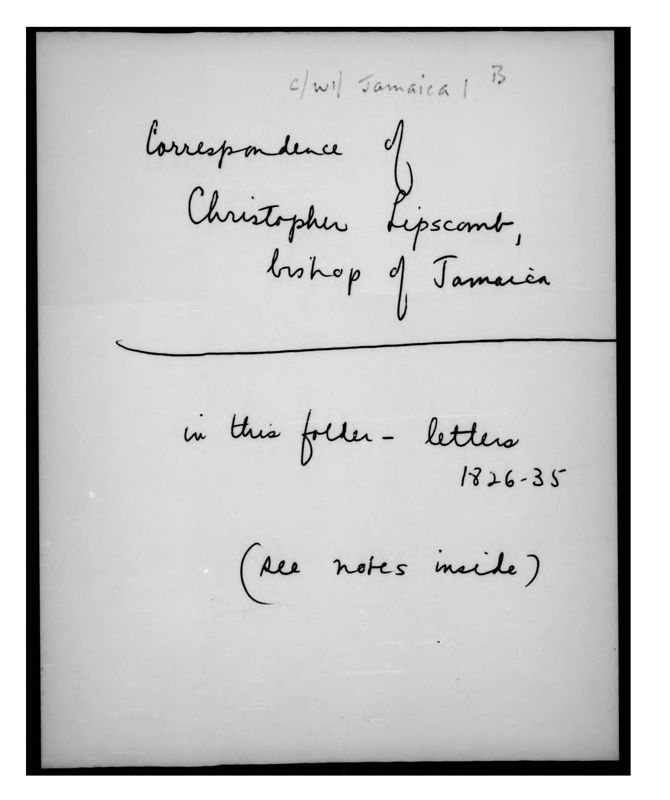 C/WI/ Jamaica 1 B
Correspondence of
Christopher Lipscomb,
bishop of Jamaica
in this folder - letters
1826-35
(see notes inside)